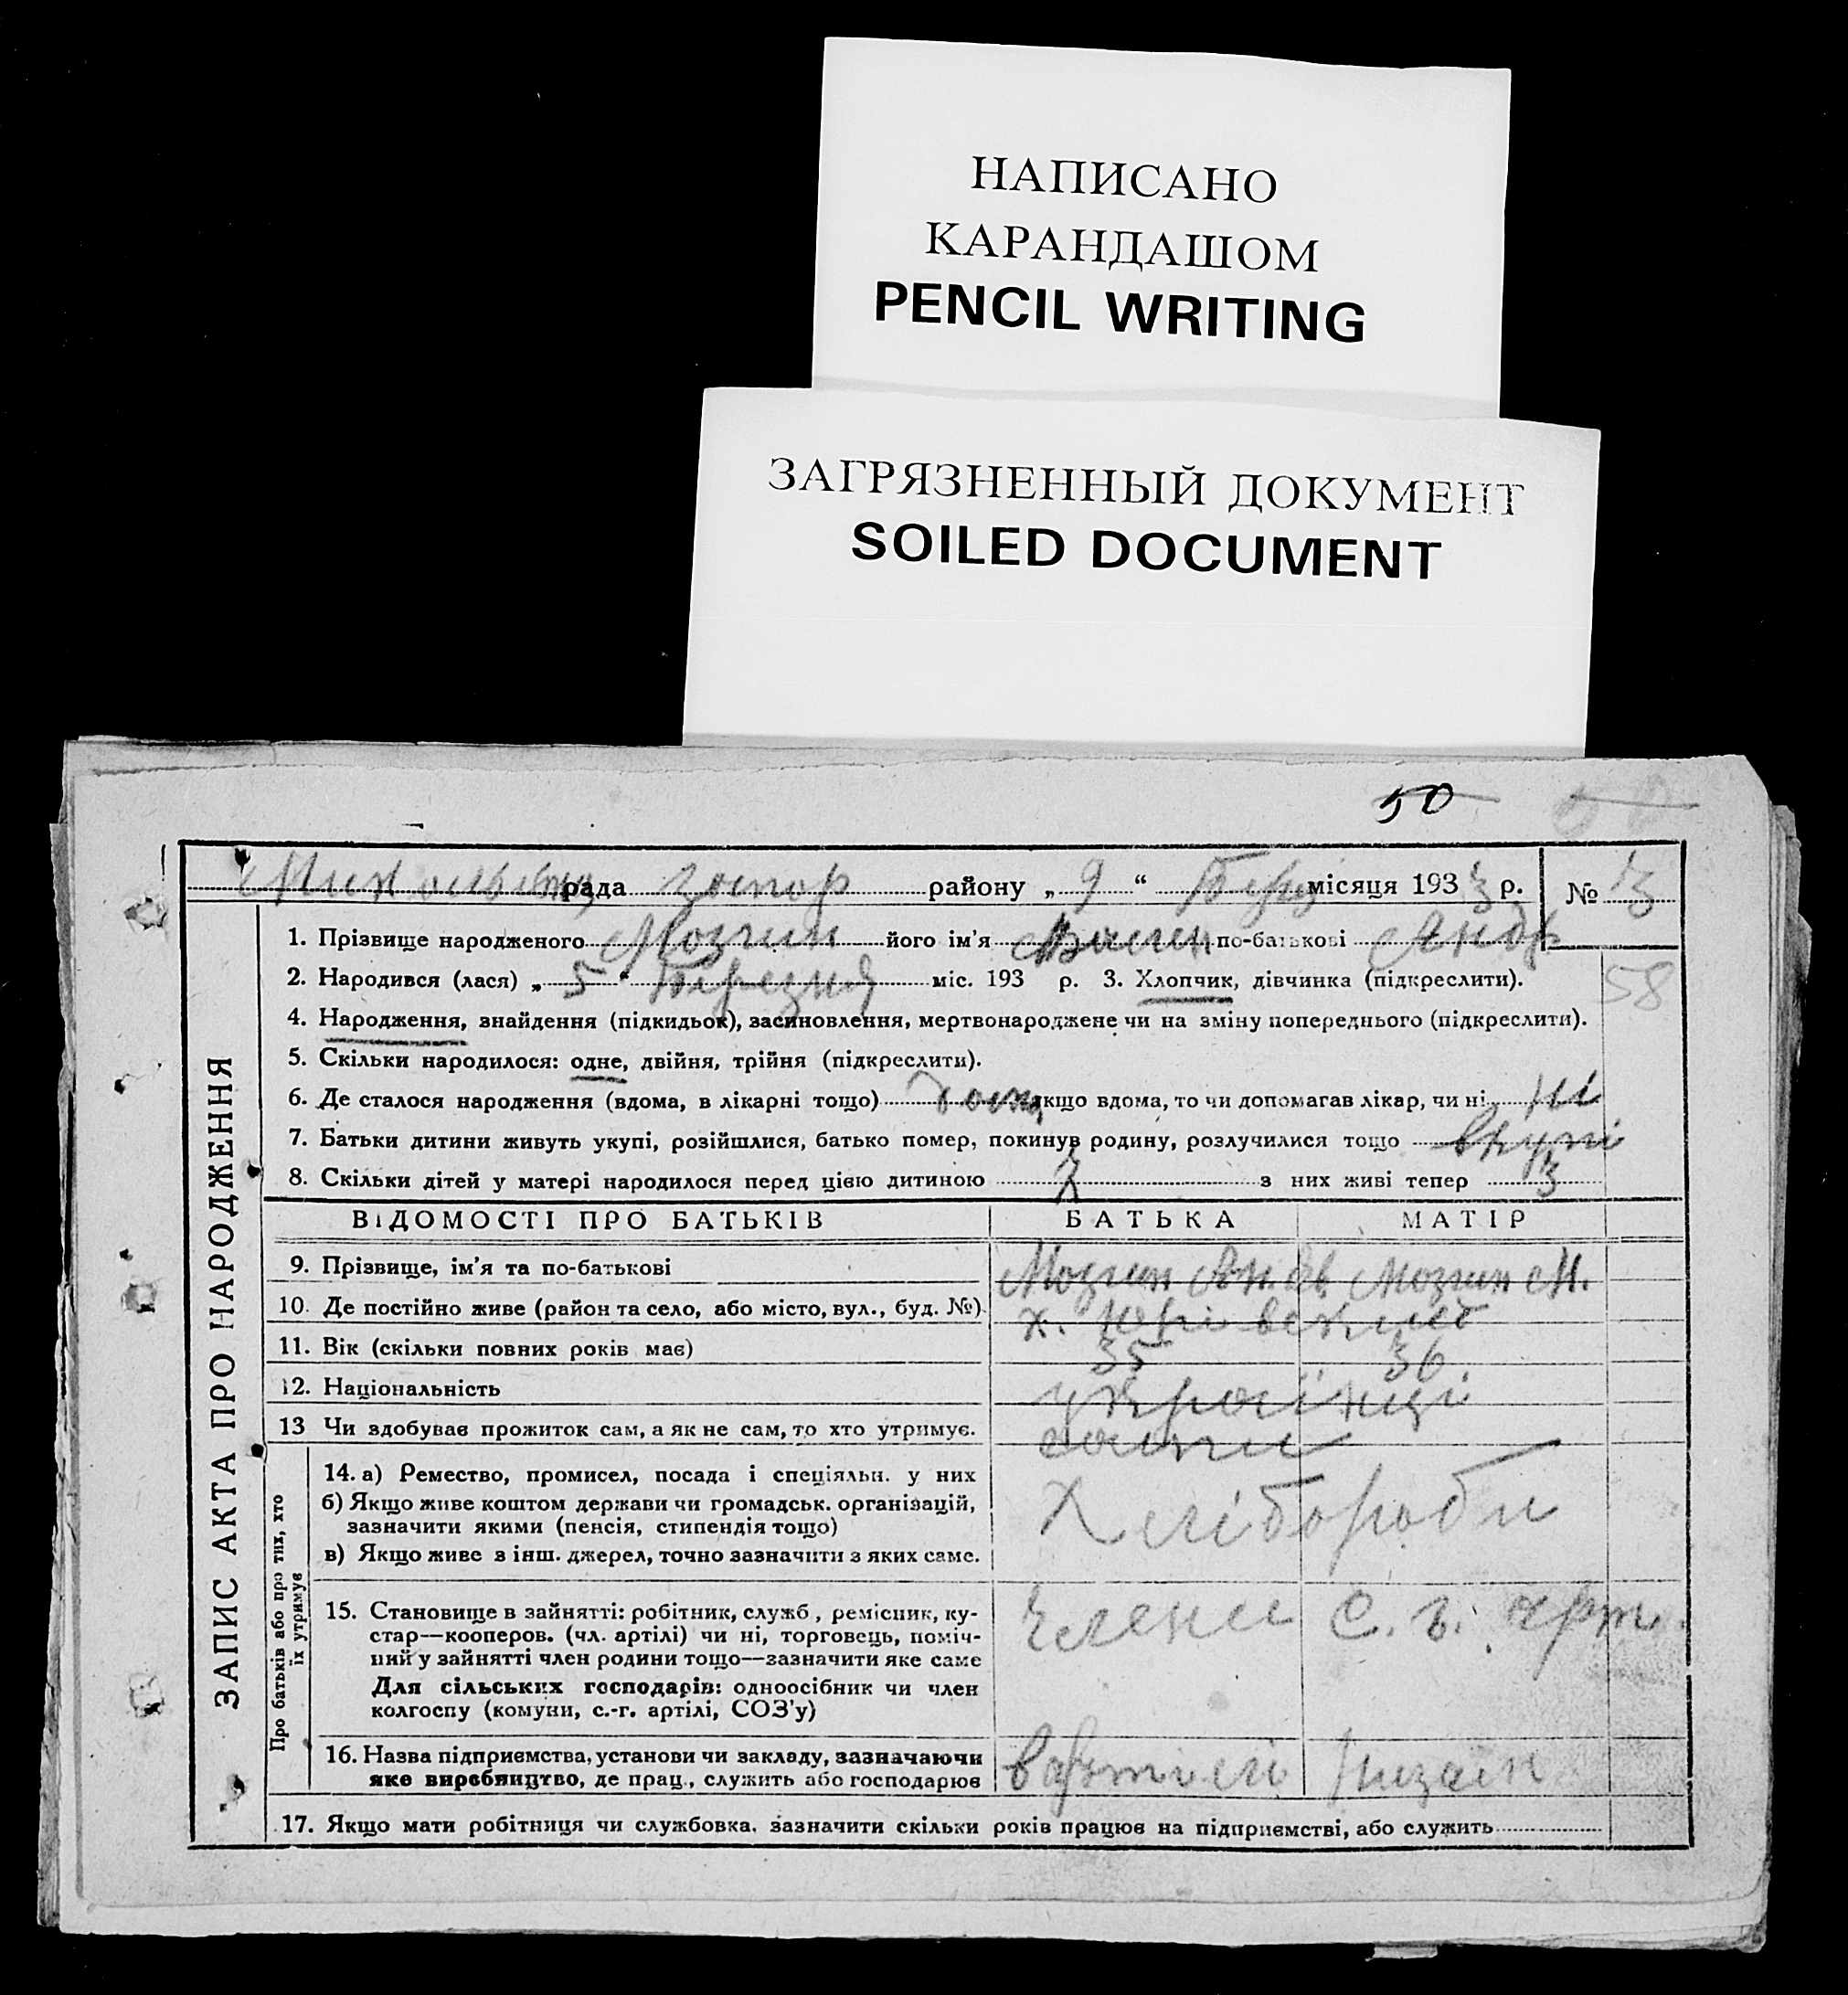 НАПИСАНО
КАРАНДАШОМ
PENCIL WRITING
ЗАГРЯЗНЕННЫЙ ДОКУМЕНТ
SOILED DOCUMENT
50
рада району „ 9 “ місяця 193 3 р. № 3
1. Прізвище народженого Мозгин його ім'я по-батькові Андр
2. Народився (лася) „ 5 “ Березня міс. 193 р. 3. Хлопчик, дівчинка (підкреслити).
58
4. Народження, знайдення (підкидьок), засиновлення, мертвонароджене чи на зміну попереднього (підкреслити).
5. Скільки народилося: одне, двійня, трійня (підкреслити).
6. Де сталося народження (вдома, в лікарні тощо) якщо вдома, то чи допомагав лікар, чи ні ні
7. Батьки дитини живуть укупі, розійшлися, батько помер, покинув родину, розлучилися тощо вкупі
8. Скільки дітей у матері народилося перед цією дитиною з них живі тепер 3
ВІДОМОСТІ ПРО БАТЬКІВ БАТЬКА МАТІР
9. Прізвище, ім'я та по-батькові Мозгин Ан. Мозгин М.
10. Де постійно живе (район та село, або місто, вул., буд. №) х.
11. Вік (скільки повних років має) 35 36
12. Національність українці
13 Чи здобував прожиток сам, а як не сам, то хто утримує. сами
14. а) Ремество, промисел, посада і спеціяльн. у них
б) Якщо живе коштом держави чи громадськ. організацій,
зазначити якими (пенсія, стипендія тощо)
в) Якщо живе з інш. джерел, точно зазначити з яких саме.
Хлібороби
15. Становище в зайнятті: робітник, служб, ремісник, ку-
стар—кооперов. (чл. артілі) чи ні, торговець, поміч-
ний у зайнятті член родини тощо—зазначити яке саме
Для сільських господарів: одноосібник чи член
колгоспу (комуни, с.-г. артілі, СОЗ'у)
члени с. г. арт.
16. Назва підприємства, установи чи закладу, зазначаючи
яке виробництво, де прац., служить або господарює
в артілі
17. Якщо мати робітниця чи службовка, зазначити скільки років працює на підприємстві, або служить
ЗАПИС АКТА ПРО НАРОДЖЕННЯ
Про батьків або про тих, хто
їх утримує